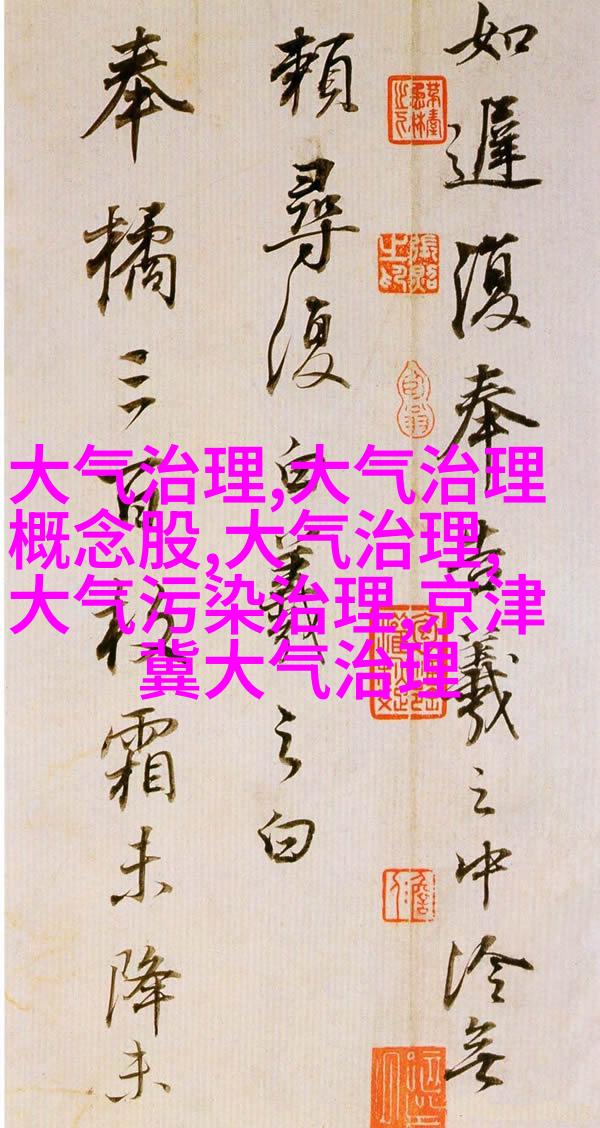 如遲復奉告羲之中冷無
賴尋復白羲之白
奉橘三百枚霜未降未
大气治理,大气治理
概念股,大气治理,
大气污染治理,京津
冀大气治理